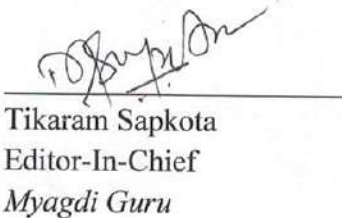 Tikaram Sapkota
Editor-In-Chief
Myagdi Guru